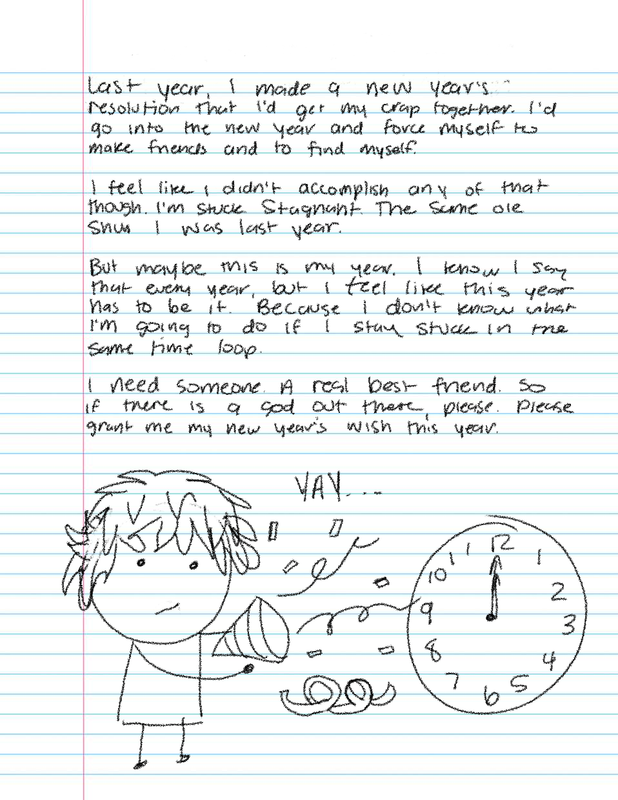 Last year, I made a new year's
resolution that I'd get my crap together. I'd
go into the new year and force myself to
make friends and to find myself.
I feel like I didn't accomplish any of that
though. I'm stuck. Stagnant. The same ole
Shun I was last year.
But maybe this is my year. I know I say
that every year, but I feel like this year
has to be it. Because I don't know what
I'm going to do if I stay stuck in the
same time loop.
I need someone. A real best friend. So
if there is a god out there, please. Please
grant me my new year's wish this year.
YAY...
12
11
1
10
2
9
3
8
4
7
5
6